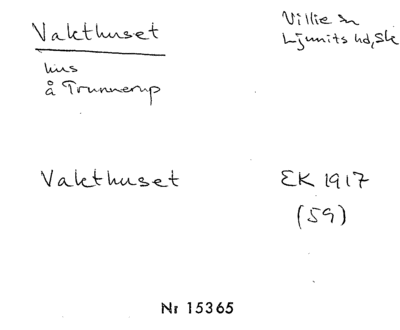 Vakthuset
Villie sn
Ljunits hd, Sk
hus
å Trunnerup
Vakthuset
EK 1917
(59)
Nr 15365